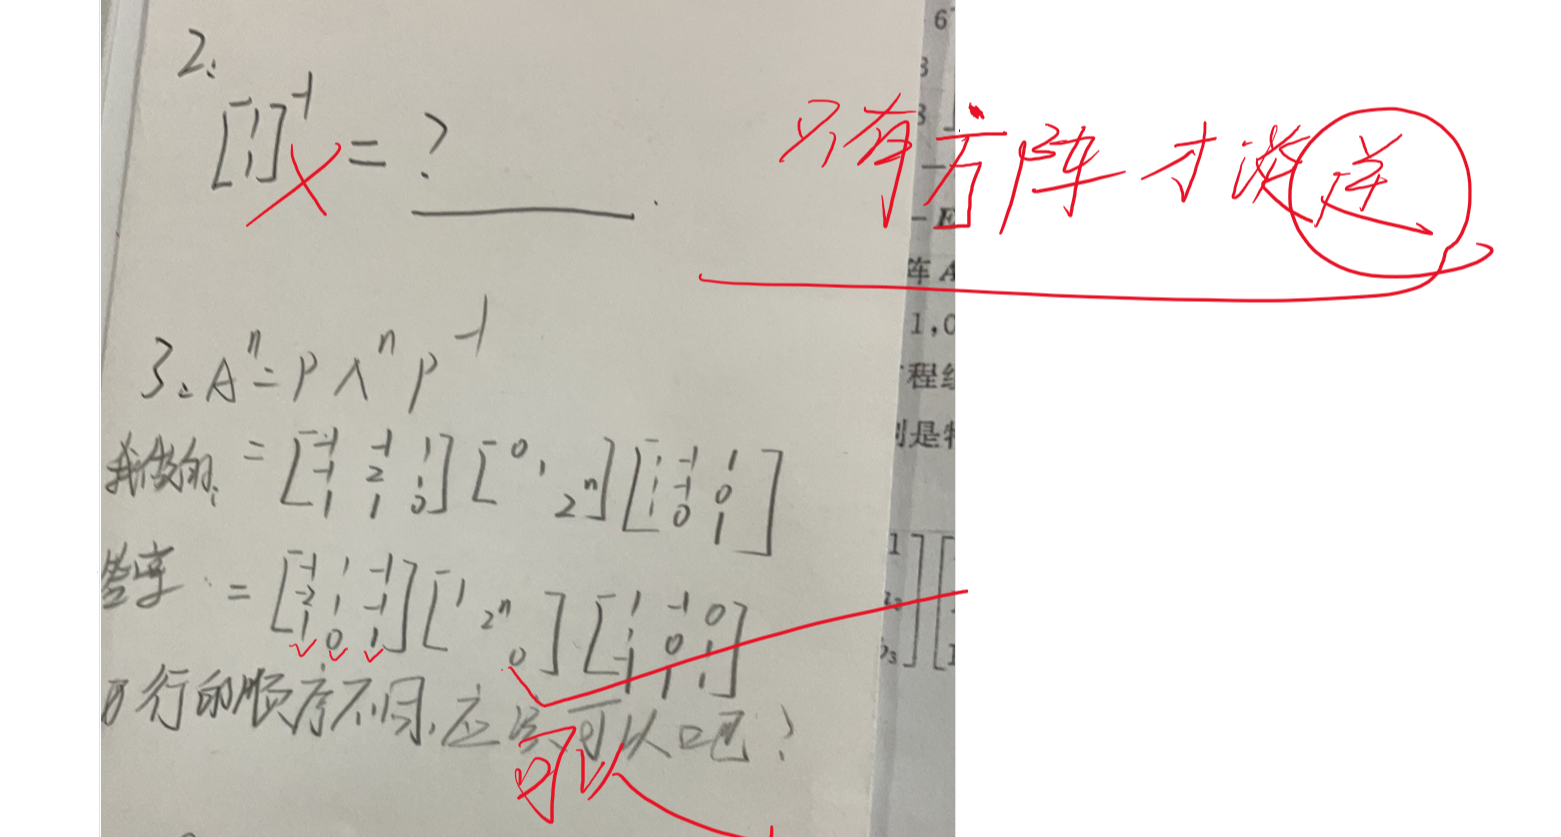 2.
[1 1]⁻¹ = ?
只有方阵才谈逆
3. Aⁿ = P Λⁿ P⁻¹
我做的: = [-1 -1 1; -1 2 1; 1 1 0] [0 1 2ⁿ] [1 -1 1; 1 -1 0; 1 0 1]
答案 = [-1 1 -1; -2 1 -1; 1 0 1] [1 2ⁿ 0] [1 -1 0; 1 0 1; -1 1 1]
行的顺序不同,应该可以吧?
可以
6
3
- E
阵 A
1,0
程组
别是特